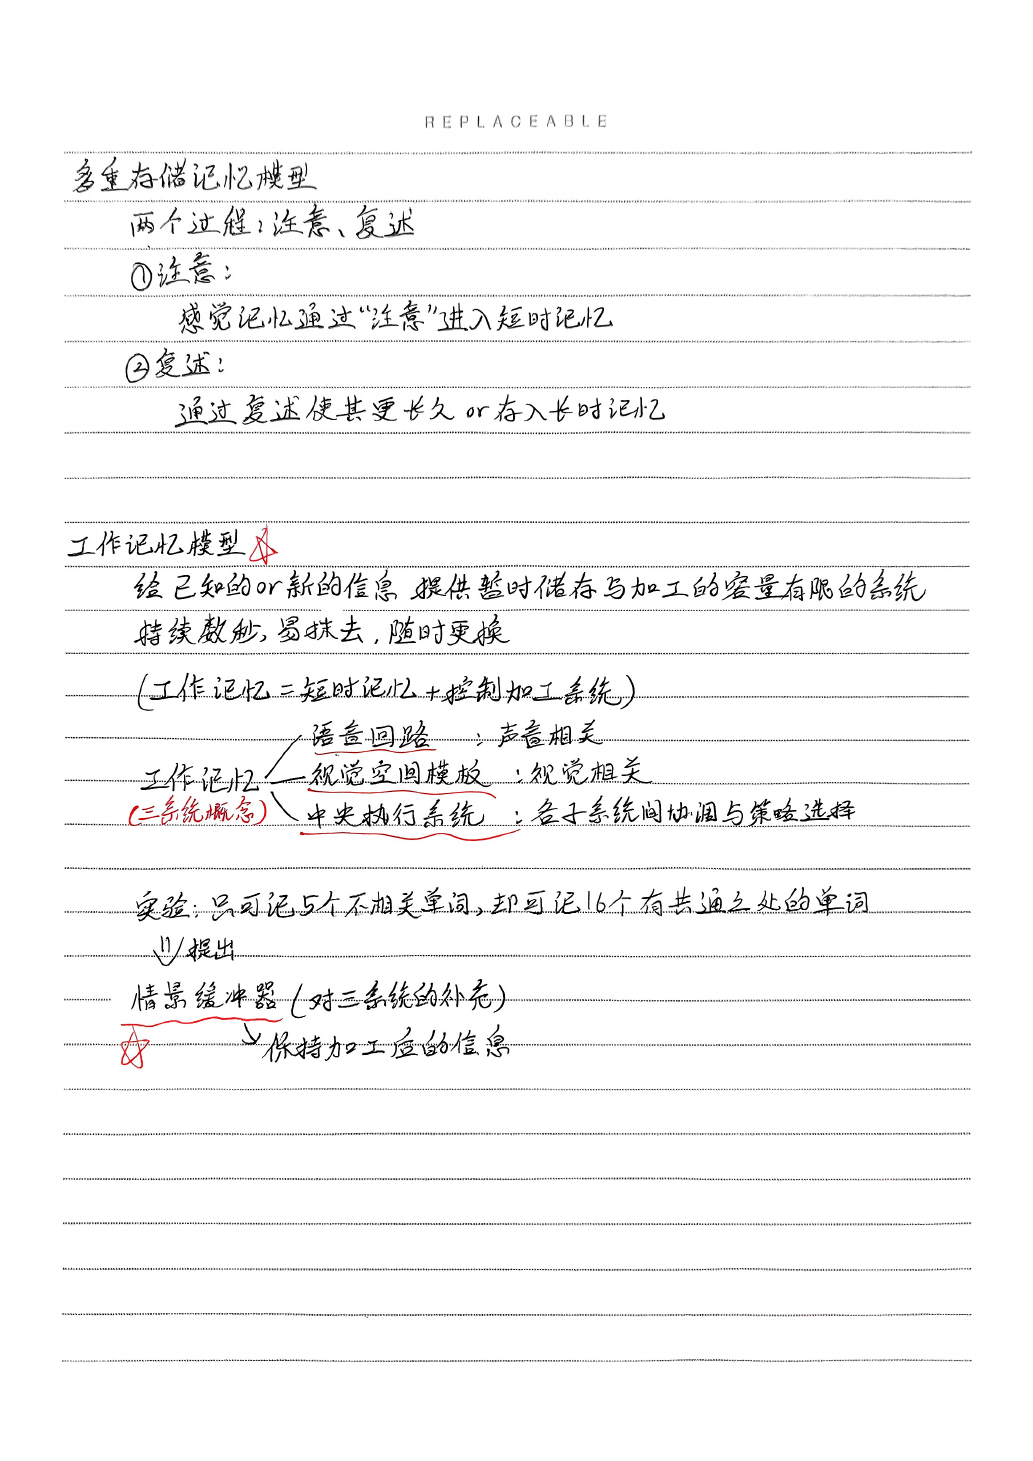 REPLACEABLE
多重存储记忆模型
两个过程:注意、复述
①注意:
感觉记忆通过“注意”进入短时记忆
②复述:
通过复述使其更长久or存入长时记忆
工作记忆模型☆
给已知的or新的信息 提供暂时储存与加工的容量有限的系统
持续数秒,易抹去,随时更换
(工作记忆=短时记忆+控制加工系统)
语音回路 :声音相关
工作记忆 视觉空间模板 :视觉相关
(三系统概念) 中央执行系统 :各子系统间协调与策略选择
实验:只可记5个不相关单词,却可记16个有共通之处的单词
⇓提出
情景缓冲器(对三系统的补充)
☆ ↘保持加工后的信息